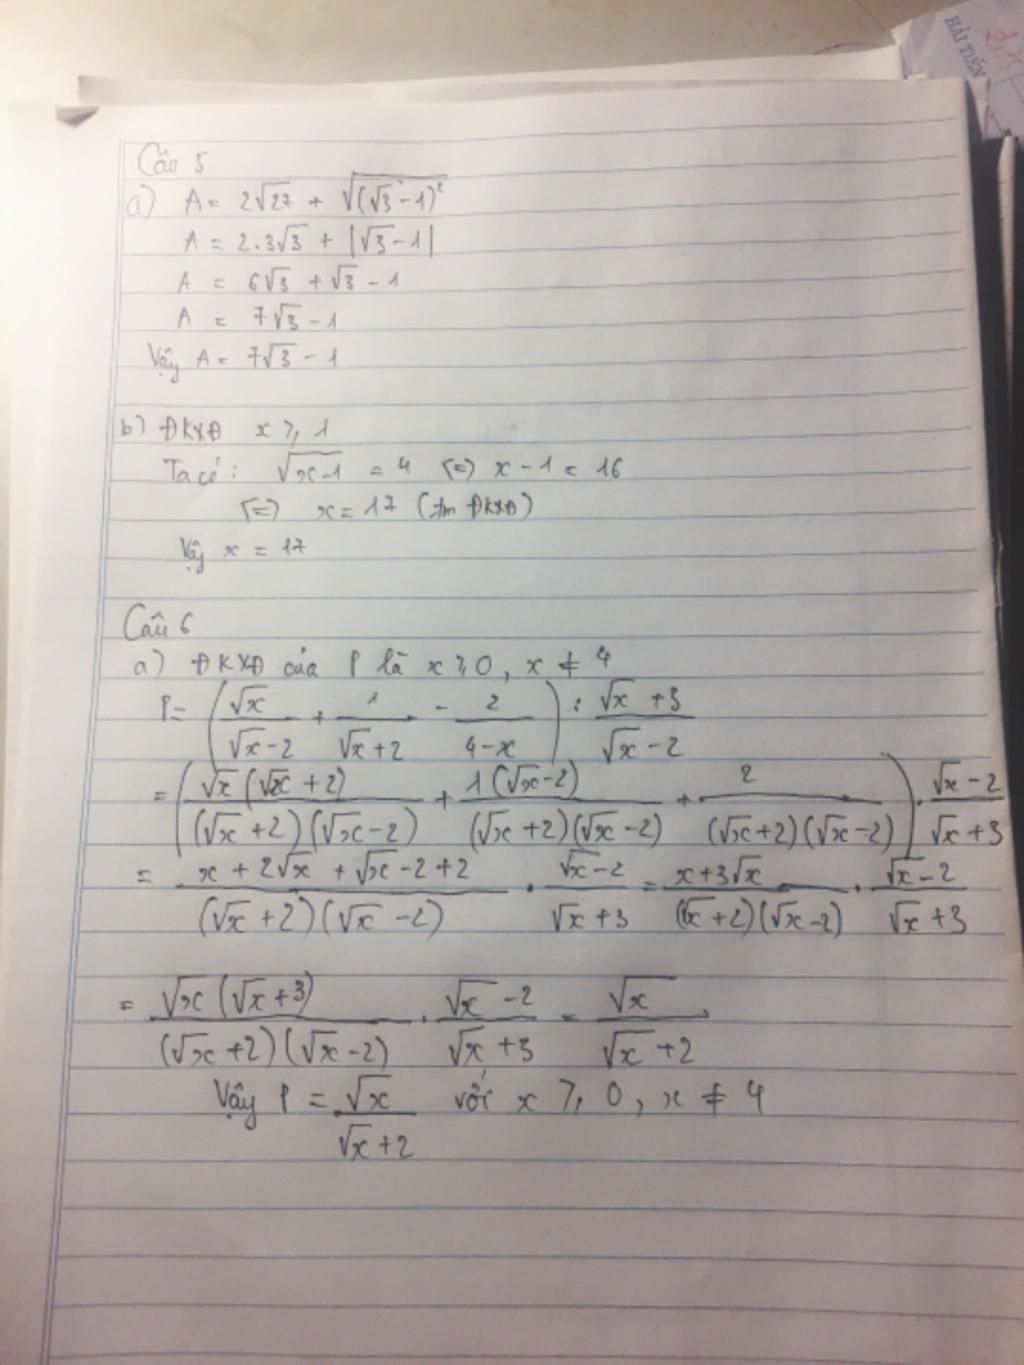 HẢI TIẾN
Câu 5
a) A = 2√27 + √(√3 - 1)²
A = 2.3√3 + |√3 - 1|
A = 6√3 + √3 - 1
A = 7√3 - 1
Vậy A = 7√3 - 1
b) ĐKXĐ x ⩾ 1
Ta có : √x-1 = 4 (=) x - 1 = 16
(=) x = 17 (tm ĐKXĐ)
Vậy x = 17
Câu 6
a) ĐKXĐ của P là x ⩾ 0, x ≠ 4
P = (√x/(√x - 2) + 1/(√x + 2) - 2/(4 - x)) : (√x + 3)/(√x - 2)
= (√x(√x + 2)/((√x + 2)(√x - 2)) + 1(√x - 2)/((√x + 2)(√x - 2)) + 2/((√x + 2)(√x - 2))) . (√x - 2)/(√x + 3)
= (x + 2√x + √x - 2 + 2)/((√x + 2)(√x - 2)) . (√x - 2)/(√x + 3) = (x + 3√x)/((√x + 2)(√x - 2)) . (√x - 2)/(√x + 3)
= √x(√x + 3)/((√x + 2)(√x - 2)) . (√x - 2)/(√x + 3) = √x/(√x + 2)
Vậy P = √x/(√x + 2) với x ⩾ 0, x ≠ 4